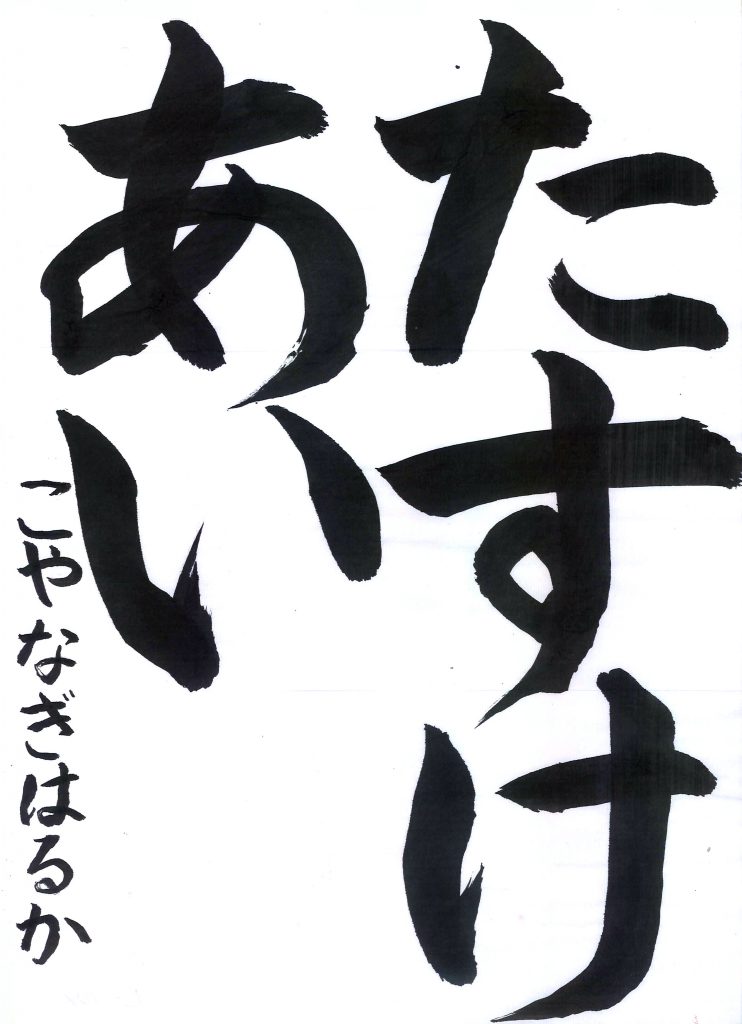 たすけ
あい
こやなぎはるか